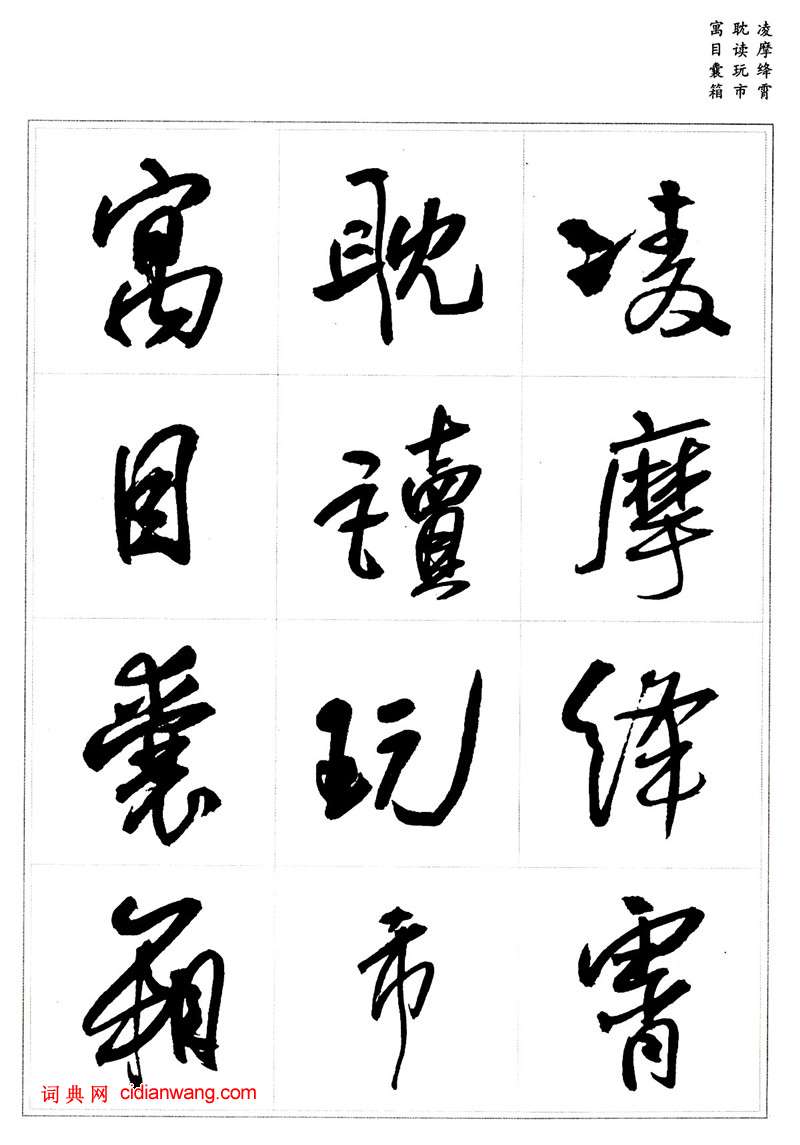 凌摩绛霄
耽读玩市
寓目囊箱
凌摩絳霄
耽讀玩市
寓目囊箱
词典网 cidianwang.com